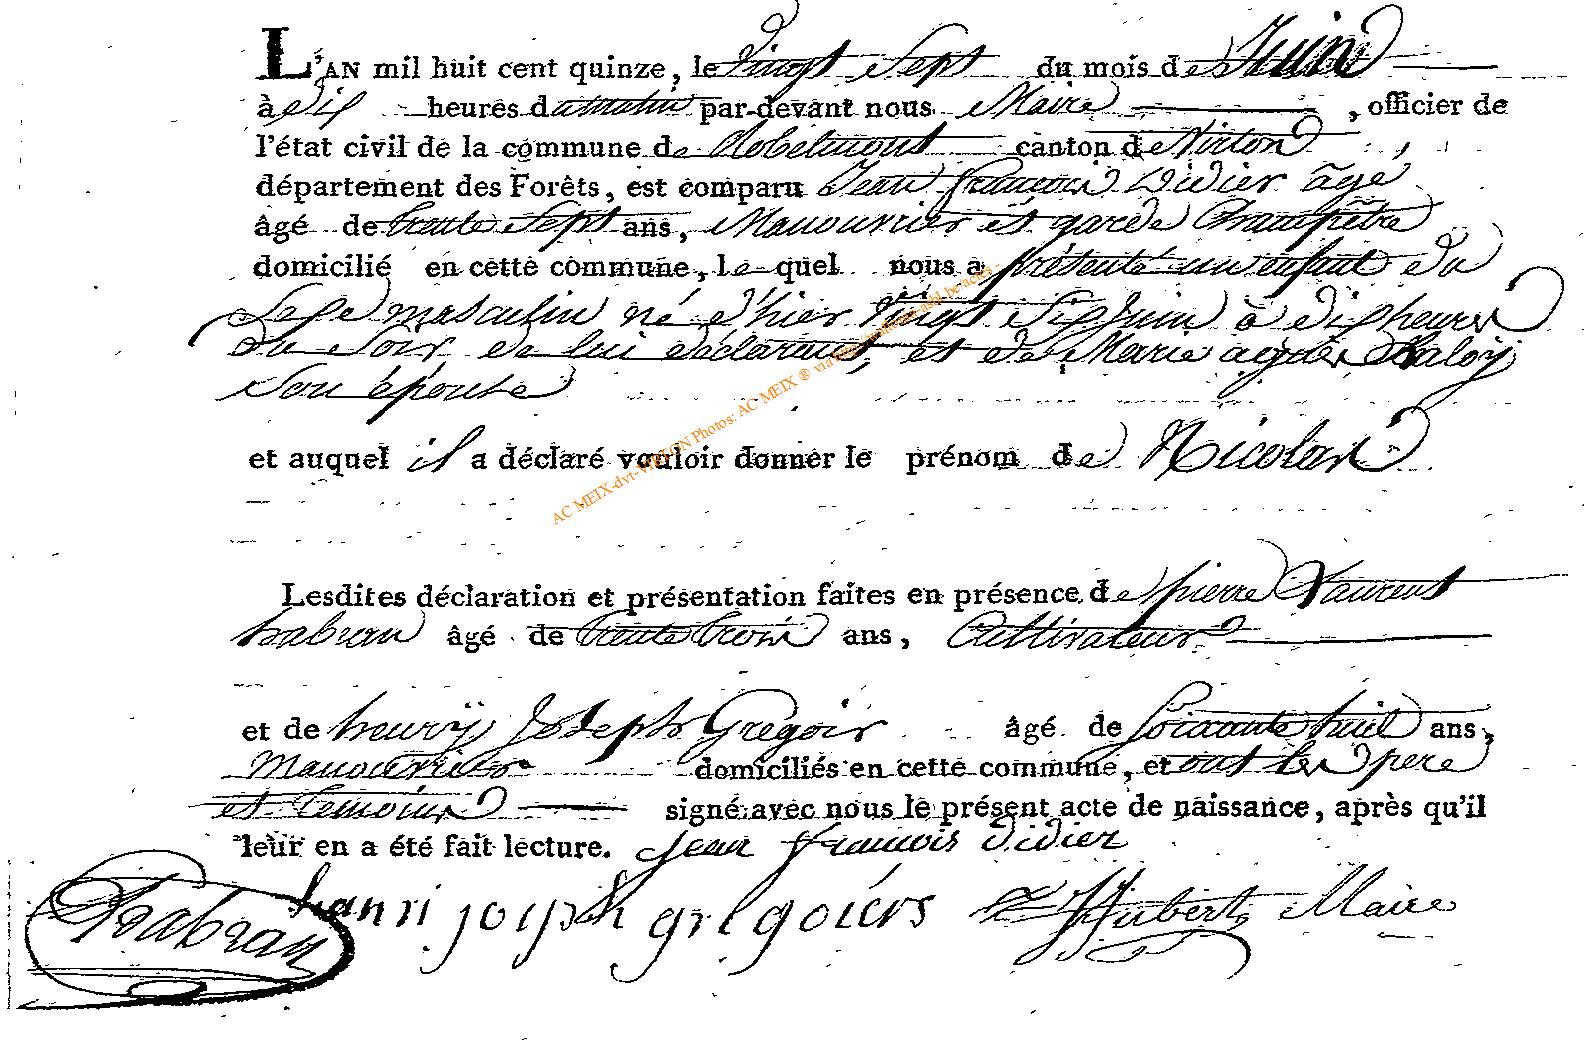 L'AN mil huit cent quinze, le vingt sept du mois de Juin
à dix heures du matin par-devant nous Maire , officier de
l'état civil de la commune de Robelmont canton de Virton ,
département des Forêts, est comparu Jean françois Didier âgé
âgé de trente sept ans, Manouvrier et garde Champêtre
domicilié en cette commune, le quel nous a présenté un enfant du
Sexe masculin né d'hier vingt Six Juin à dix heures
du Soir de lui déclarant, et de Marie agnès
Son épouse
et auquel il a déclaré vouloir donner le prénom de Nicolas
Lesdites déclaration et présentation faites en présence de pierre Laurent
habran âgé de trente trois ans, Cultivateur
et de henrÿ Joseph Grégoir âgé de Soixante huit ans,
Manouvrier domiciliés en cette commune, et ont les pere
et temoins signé avec nous le présent acte de naissance, après qu'il
leur en a été fait lecture. Jean françois didier
habran hanri joseph grégoiers Hubert Maire
AC MEIX-dvt-VIRTON Photos: AC MEIX ® via